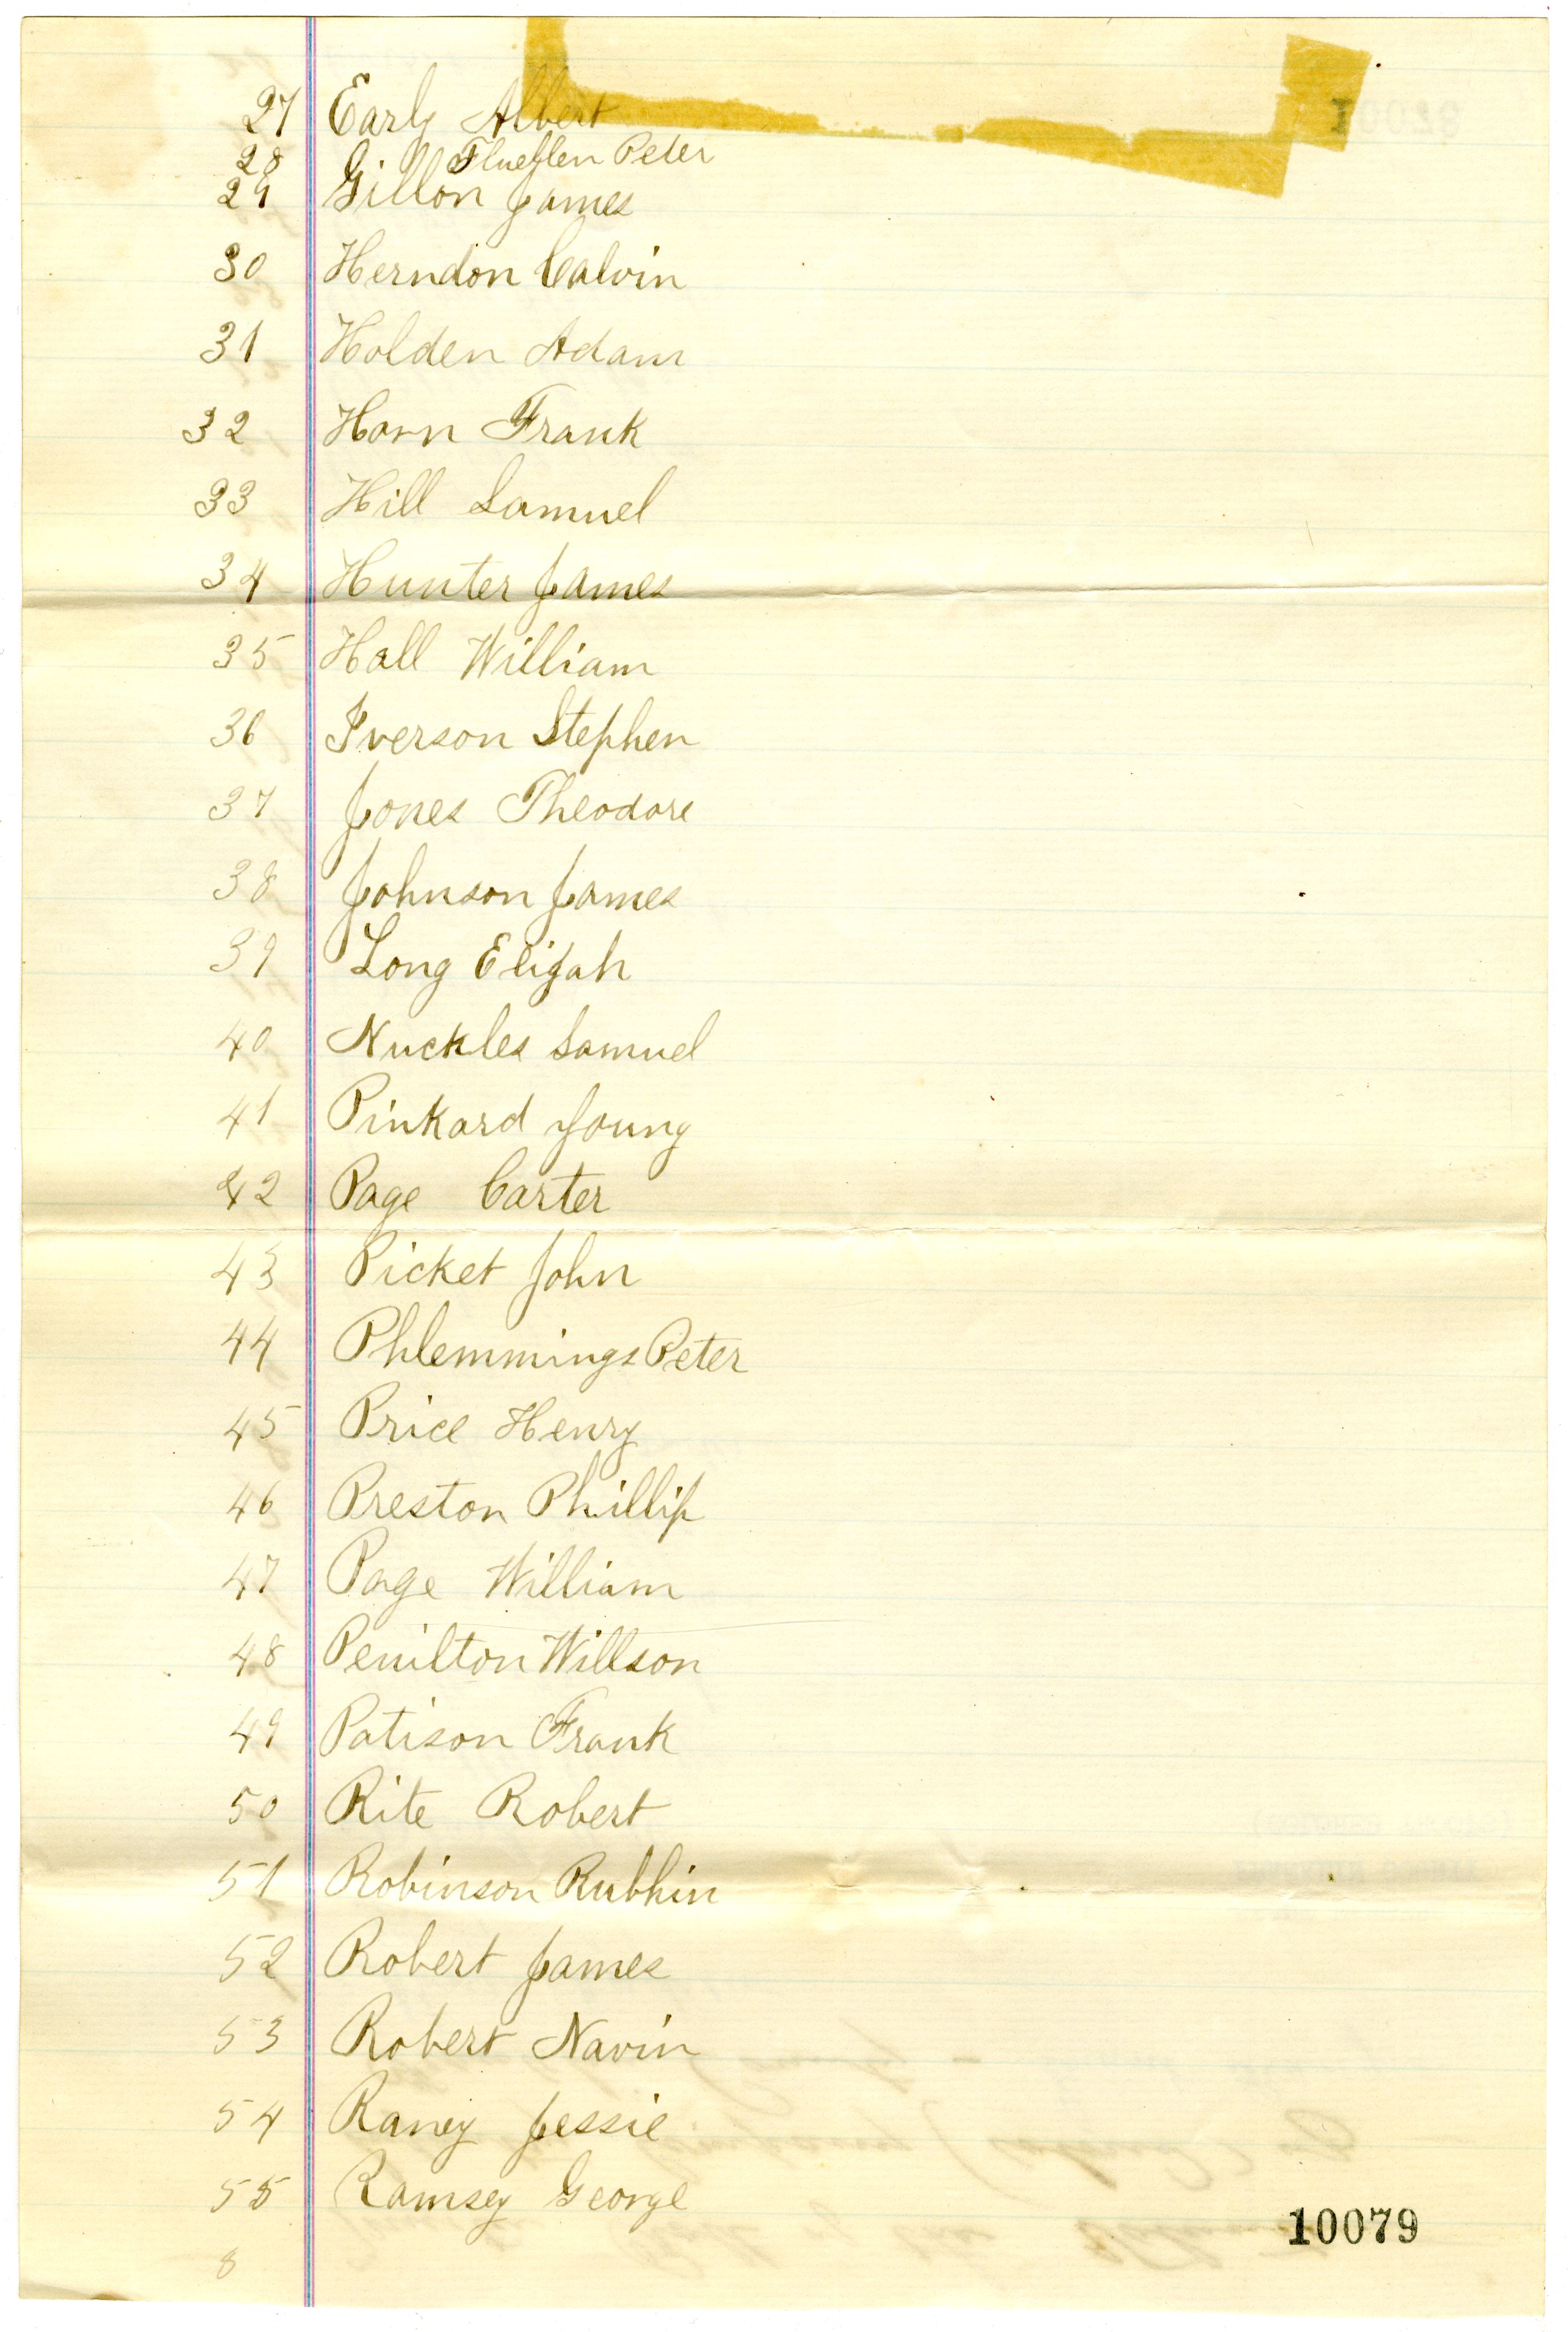 27 Early Albert
28 Fluellen Peter
29 Gillon James
30 Herndon Calvin
31 Holden Adam
32 Horn Frank
33 Hill Samuel
34 Hunter James
35 Hall William
36 Iverson Stephen
37 Jones Theodore
38 Johnson James
39 Long Elijah
40 Nuckles Samuel
41 Pinkard Young
42 Page Carter
43 Picket John
44 Phlemmings Peter
45 Price Henry
46 Preston Phillip
47 Page William
48 Penilton Willson
49 Patison Frank
50 Rite Robert
51 Robinson Rubhin
52 Robert James
53 Robert Navin
54 Raney Jessie
55 Ramsey George
10079
8